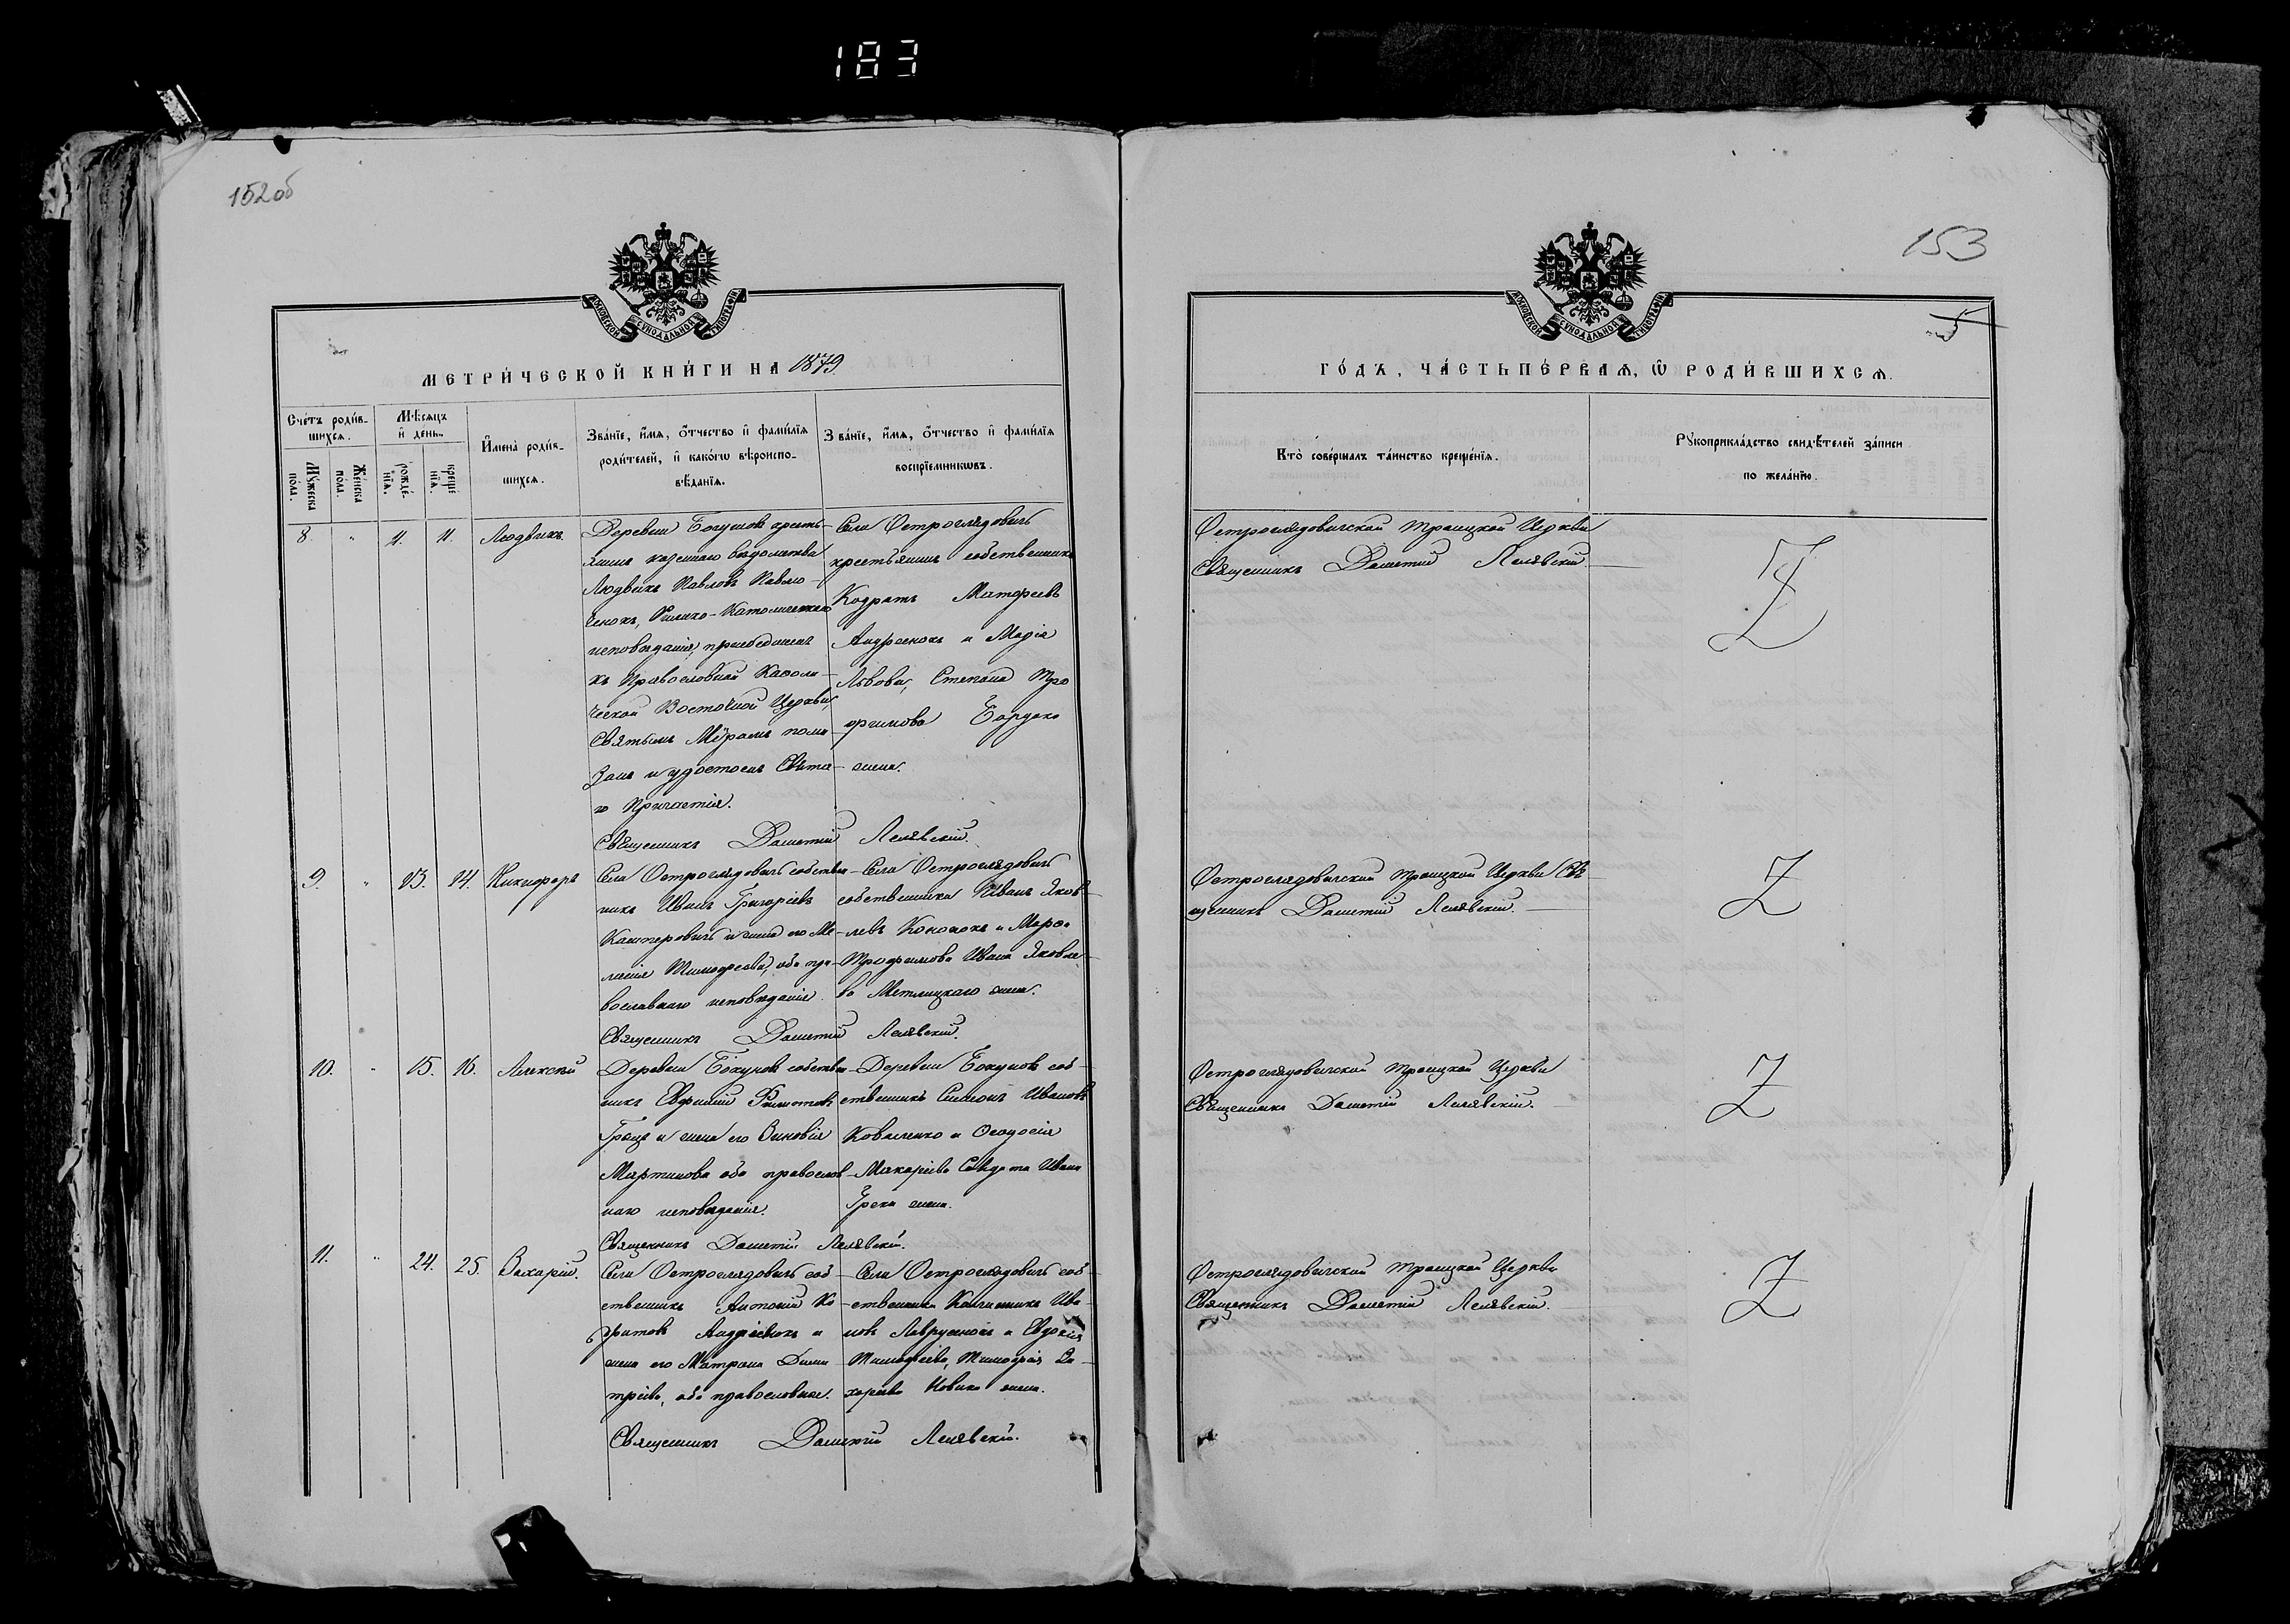 183
152об
153
5
МОСКОВСКОЙ СѴНОДАЛЬНОЙ ТИПОГРАФІИ
МОСКОВСКОЙ СѴНОДАЛЬНОЙ ТИПОГРАФІИ
МЕТРИ́ЧЕСКОЙ КНИ́ГИ НА 1879.
ГО́ДЪ, ЧА́СТЬ ПЕ́РВАѦ, Ѽ РОДИ́ВШИХСѦ.
Сче́тъ роди́в-
шихсѧ.
Мѣ́сѧцъ
и҆ день.
Му́жеска
по́ла.
Же́нска
по́ла.
рожде́-
нїѧ.
креще́
нїѧ.
И҆мена̀ роди́в-
шихсѧ.
Зва́нїе, и҆́мѧ, ѻ҆́тчество и҆ фамі́лїѧ
роди́телей, и҆ како́гѡ вѣроиспо-
вѣ́данїѧ.
Зва́нїе, и҆́мѧ, ѻ҆́тчество и҆ фамі́лїѧ
воспрїе́мникѡвъ.
Кто̀ соверша́лъ та́инство креще́нїѧ.
Рꙋкоприкла́дство свидѣ́телей за́писи
по жела́нїю.
8. " 11. 11. Людвикъ.
Деревни Богушов кресть-
янинъ казеннаго вѣдомства
Людвикъ Павловъ Павлю-
ченокъ, Римско-Католическаго
исповѣданія, присоединенъ
къ Православной Каѳоли-
ческой Восточной Церкви,
Святымъ Мѵромъ пома-
занъ и удостоенъ Свята-
го Причастія.
Священникъ Даметій Лелявскій.
Села Остроглядовичъ
крестьянинъ собственникъ
Кодратъ Матфеевъ
Андреенокъ и Марія
Львова, Степана Тро
фимова
жена.
Остроглядовичской Троицкой Церкви
Священникъ Даметій Лелявскій.
9. " 13. 14. Никифоръ
Села Остроглядовичъ собствен-
никъ Иванъ Григорьевъ
Касперовичъ и жена его Ме-
ланія Тимофеева, оба пра-
вославнаго исповѣданія.
Священникъ Даметій Лелявскій.
Села Остроглядовичъ
собственники Иванъ Яков-
левъ Кононокъ и Марѳа
Трофимова Ивана Яковле-
ва Метлицкаго жена.
Остроглядовичской Троицкой Церкви Свя-
щенникъ Даметій Лелявскій.
10. " 15. 16. Алексѣй
Деревни Бокунов собствен-
никъ Евфимій Филиповъ
и жена его Зиновія
Мартинова оба православ-
наго исповѣданія.
Священникъ Даметій Лелявскій.
Деревни Бокунов соб-
ственникъ Симонъ Ивановъ
Коваленко и Ѳеодосія
Макарьева Солдата Ивана
Грека жена.
Остроглядовичской Троицкой Церкви
Священникъ Даметій Лелявскій.
11. " 24. 25. Захарій.
Села Остроглядовичъ соб-
ственникъ Антоній Ко-
дратовъ Андреенокъ и
жена его Матрона Дими-
тріева, оба православные.
Священникъ Даметій Лелявскій.
Села Остроглядовичъ соб-
ственники Каллиникъ Ива-
новъ Лаврушонокъ и Евдокія
Тимофеева, Тимофея За-
харьева Новика жена.
Остроглядовичской Троицкой Церкви
Священникъ Даметій Лелявскій.